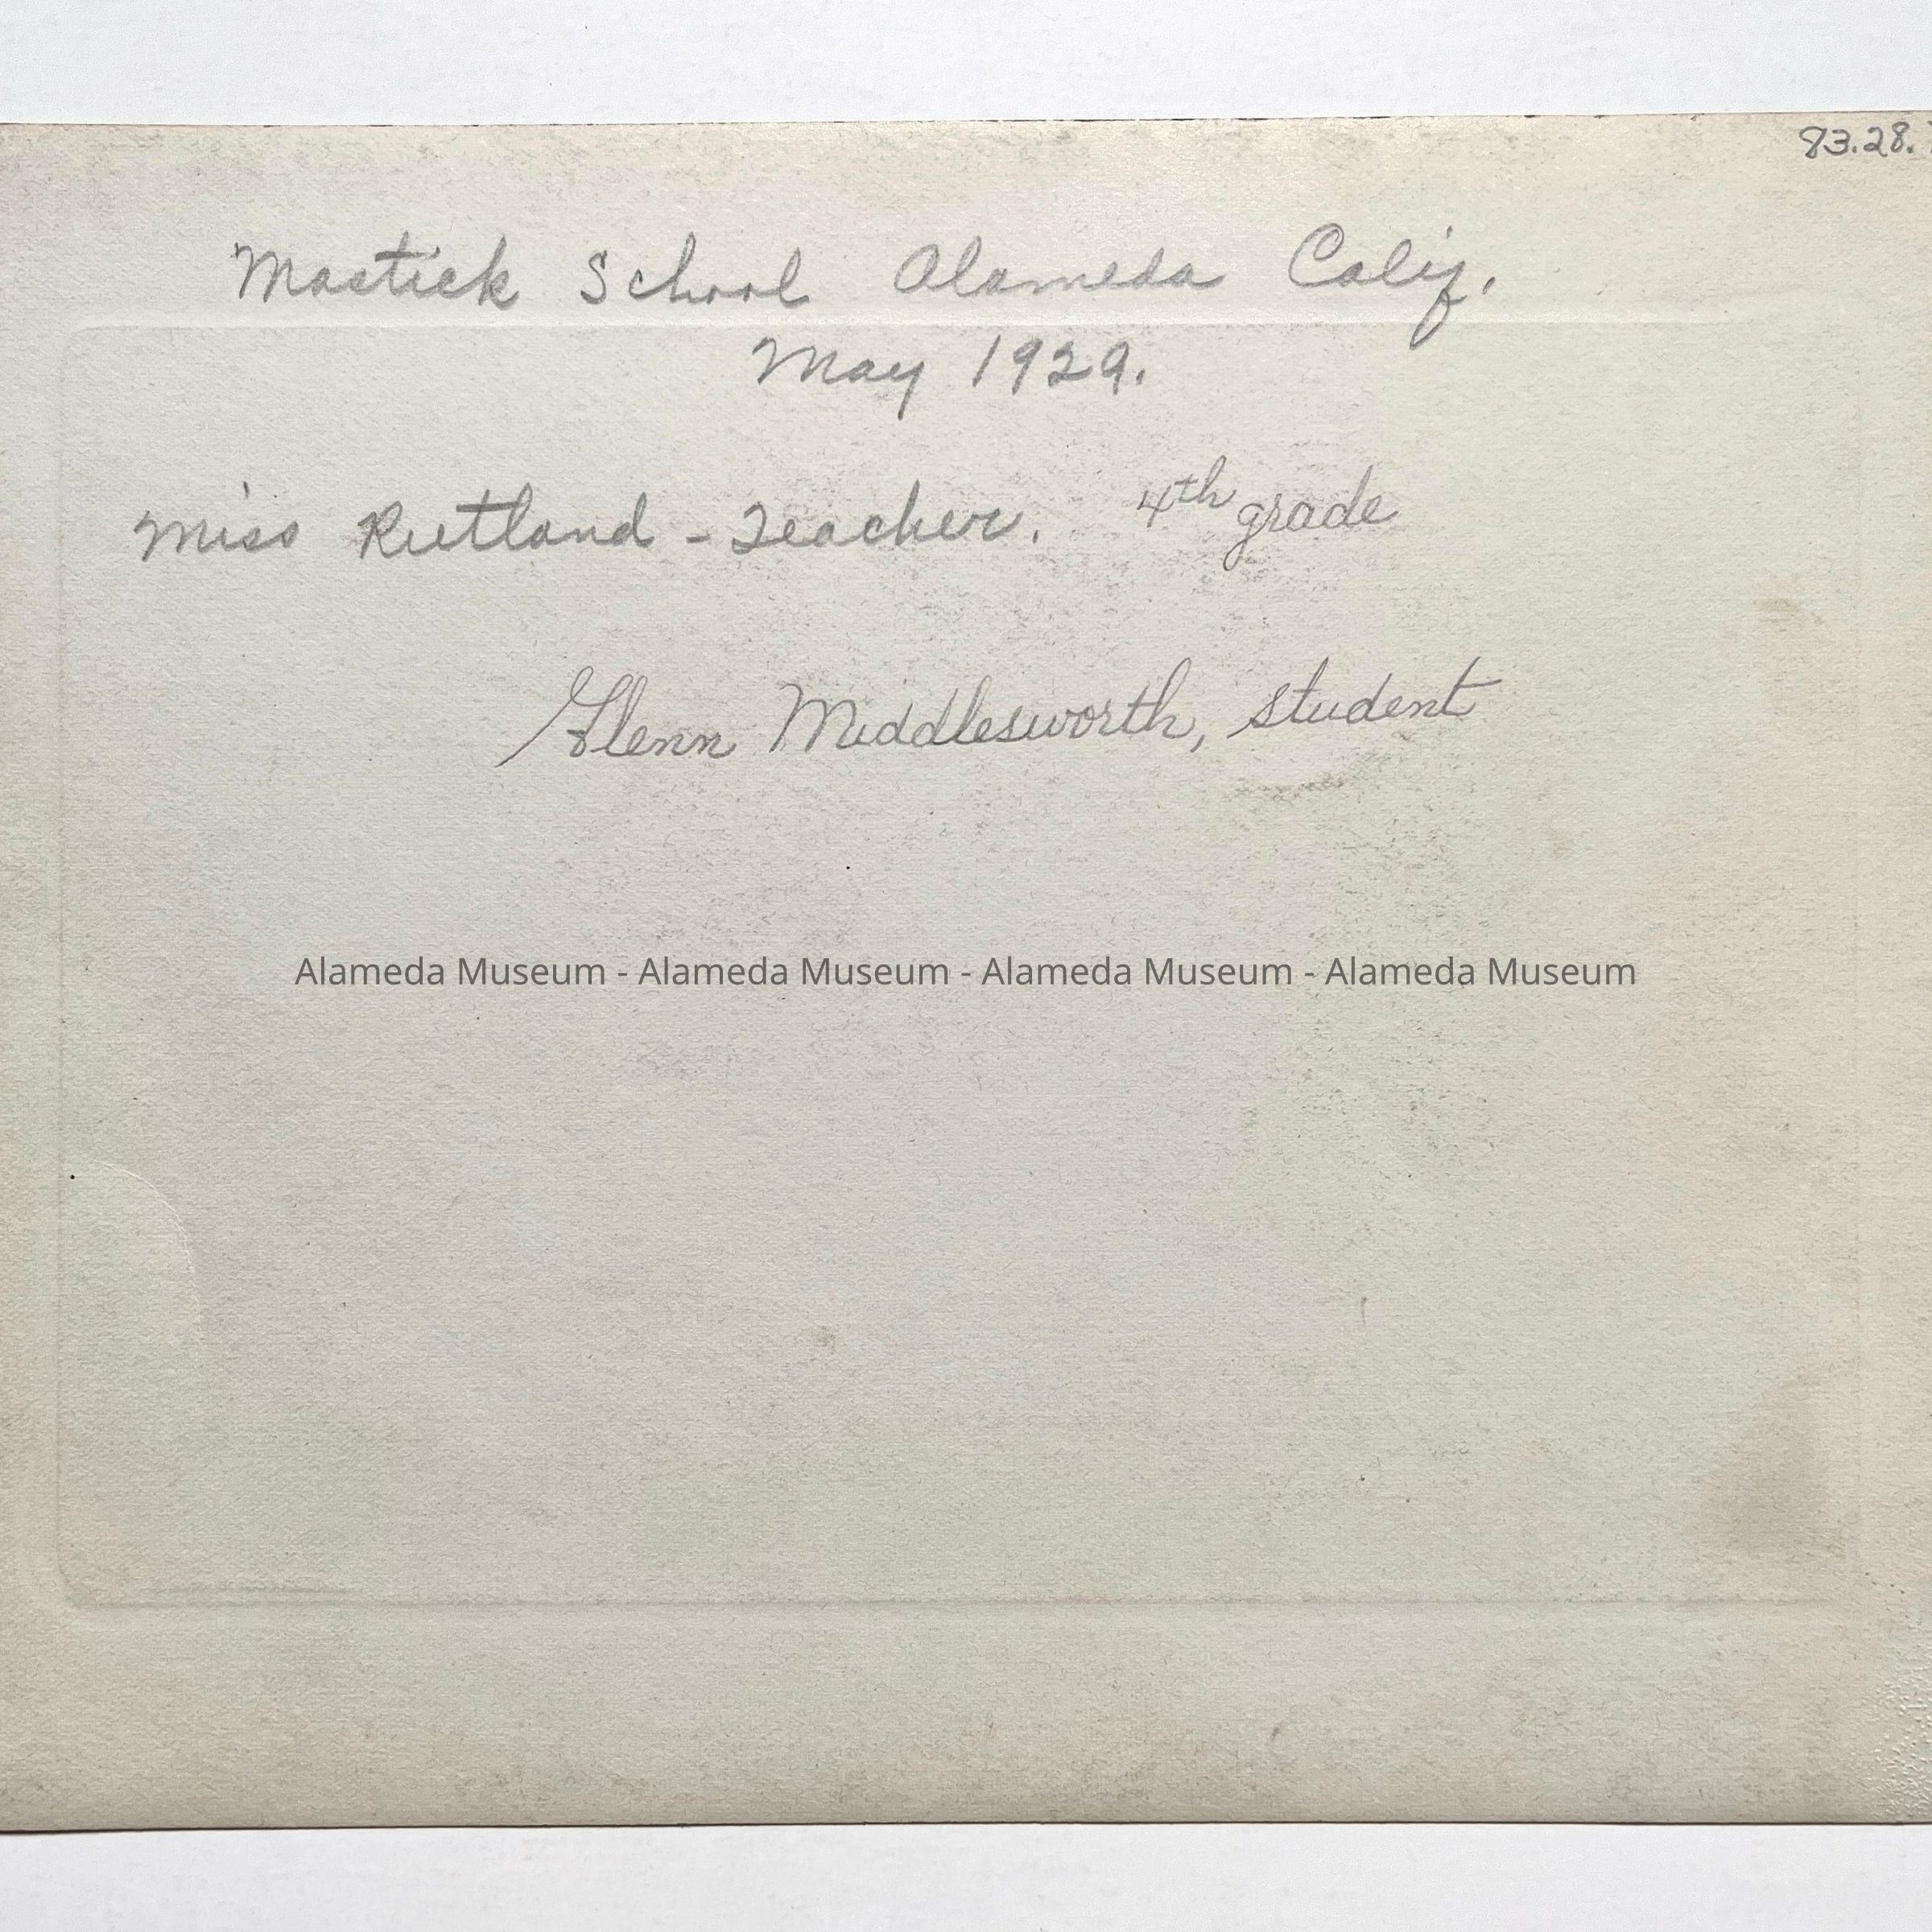 83.28.
Mastick School Alameda Calif.
May 1929.
Miss Rutland - Teacher. 4th grade
Glenn Middlesworth, student
Alameda Museum - Alameda Museum - Alameda Museum - Alameda Museum